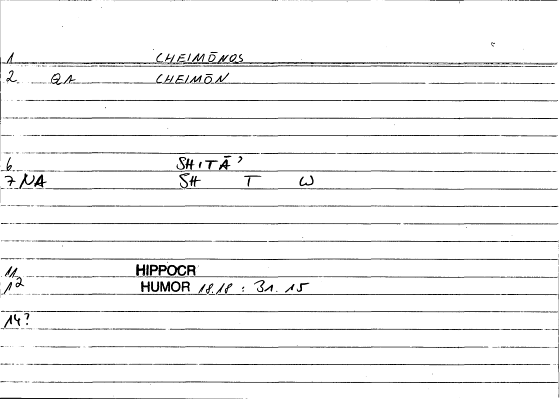 1 CHEIMŌNOS
2. QA CHEIMŌN
6 SHITĀ'
7 NA SH T W
11 HIPPOCR
12 HUMOR 18.18 : 31.15
14?